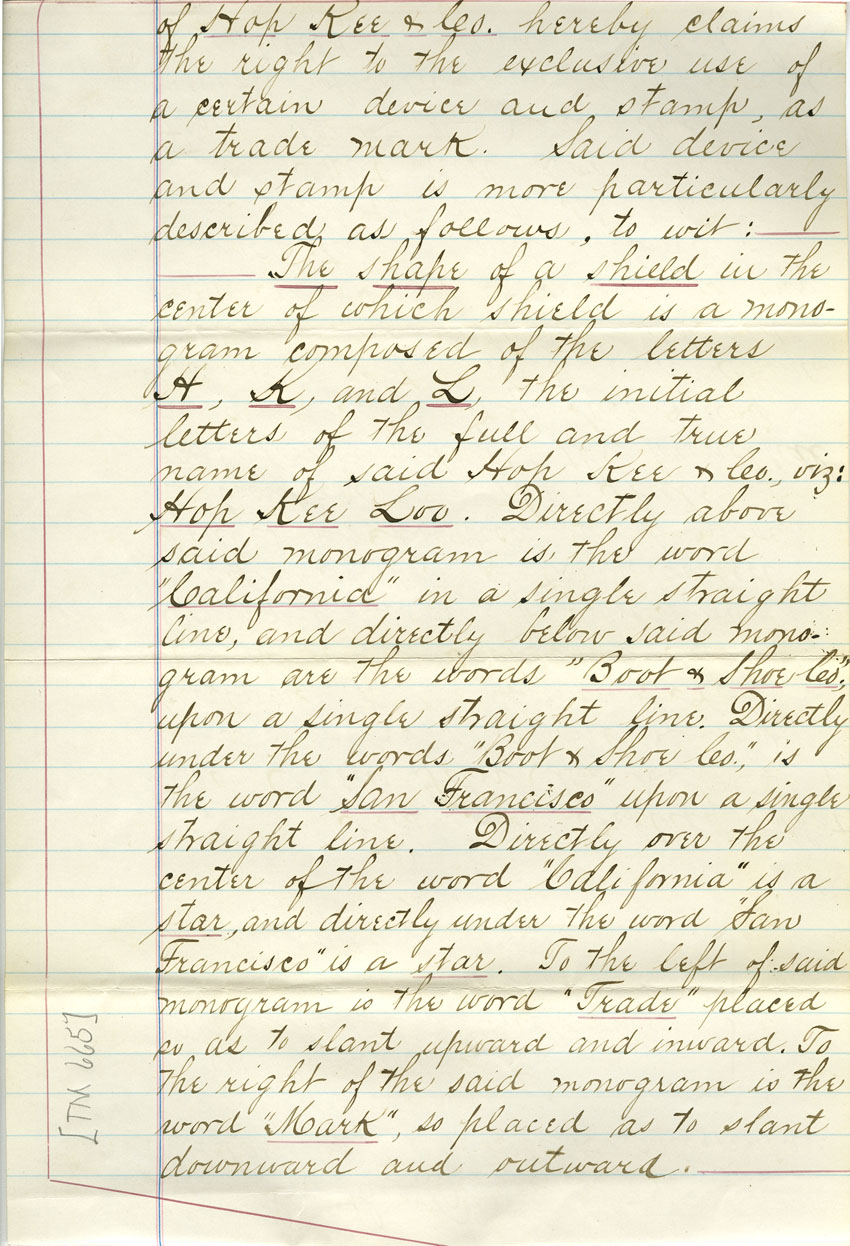 of Hop Kee & Co. hereby claims
the right to the exclusive use of
a certain device and stamp, as
a trade mark. Said device
and stamp is more particularly
described as follows, to wit:
The shape of a shield in the
center of which shield is a mono-
gram composed of the letters
H, K, and L, the initial
letters of the full and true
name of said Hop Kee & Co., viz:
Hop Kee Loo. Directly above
said monogram is the word
"California" in a single straight
line, and directly below said mono-
gram are the words "Boot & Shoe Co.",
upon a single straight line. Directly
under the words "Boot & Shoe Co.", is
the word "San Francisco" upon a single
straight line. Directly over the
center of the word "California" is a
star, and directly under the word "San
Francisco" is a star. To the left of said
monogram is the word "Trade" placed
so as to slant upward and inward. To
the right of the said monogram is the
word "Mark", so placed as to slant
downward and outward.
[TM 665]